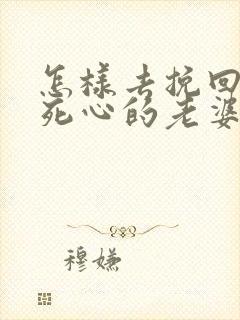 怎样去挽回
死心的老婆
穆嬚